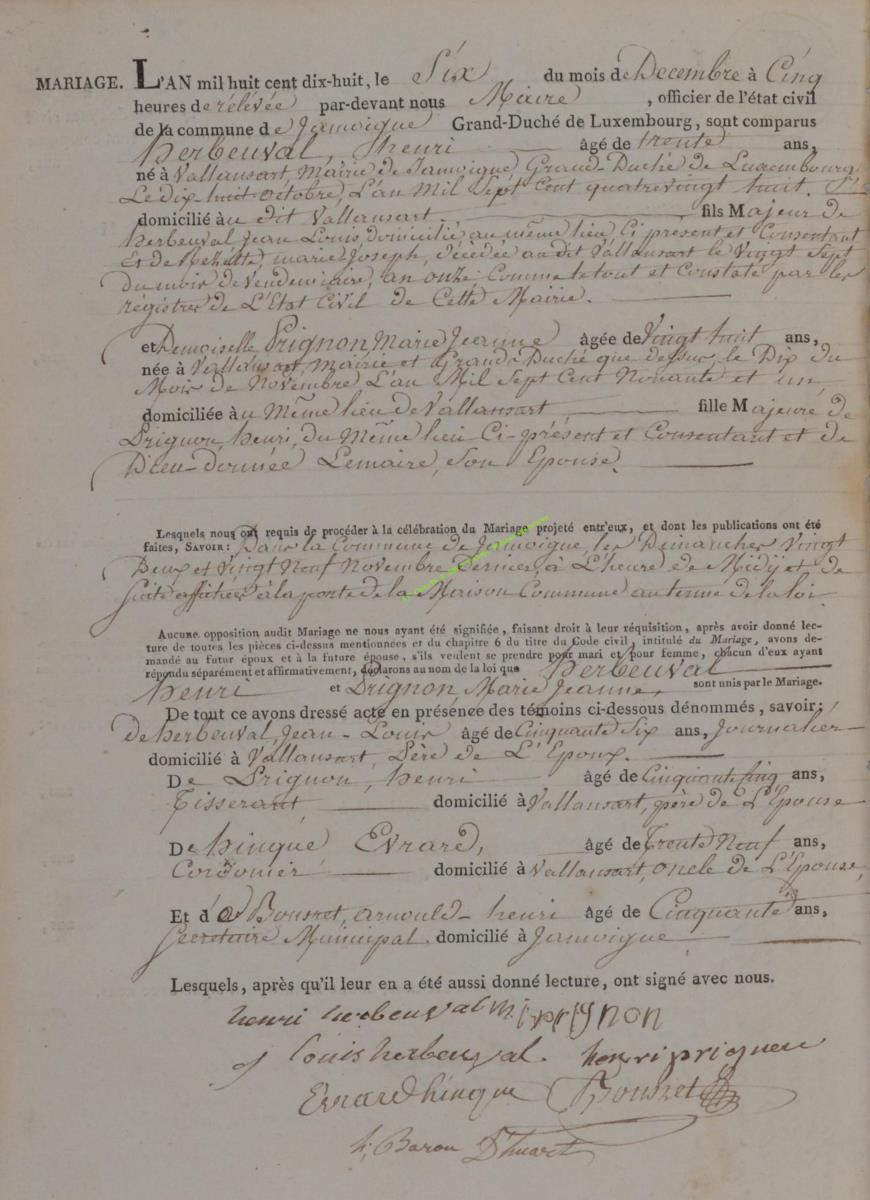 MARIAGE. L'AN mil huit cent dix-huit, le Six du mois de Decembre à Cinq
heures de rélévée par-devant nous Maire, officier de l'état civil
de la commune de Jamoigne Grand-Duché de Luxembourg, sont comparus
herbeuval, henri âgé de trente ans,
né à Vallansart, Mairie de Jamoigne, Grand-Duché de Luxembourg
Le dix huit octobre, L'an Mil Sept Cent quatrevingt huit.
domicilié au dit Vallansart. fils Majeur de
herbeuval Jean Louis, domicilié au même lieu Ci présent et Consentant
Et de Nezette, marie Joseph, décédée au dit Vallansart le Vingt Sept
Du mois de Vendemiaire, an onze Comme le tout est Constaté par les
régistres de L'Etat Civil de Cette Mairie.
et Demoiselle Prignon Marie Jeanne âgée de Vingt huit ans,
née à Vallansart, Mairie et Grand-Duché que dessus, le Dix du
Mois de Novembre L'an Mil Sept Cent Nonante et un
domiciliée au Même lieu de Vallansart fille Majeure de
Prignon, henri, du Même lieu Ci-présent et Consentant et de
Dieu-donnée Lemaire, Son Epouse.
Lesquels nous ont requis de procéder à la célébration du Mariage projeté entr'eux, et dont les publications ont été
faites, SAVOIR: Dans la Commune de Jamoigne, les Dimanches Vingt
Deux et Vingt Neuf Novembre Dernier, à L'heure de Midij et de
Suite affichés à la porte de la Maison Commune au terme de la loi
Aucune opposition audit Mariage ne nous ayant été signifiée, faisant droit à leur réquisition, après avoir donné lec-
ture de toutes les pièces ci-dessus mentionnées et du chapitre 6 du titre du Code civil, intitulé du Mariage, avons de-
mandé au futur époux et à la future épouse, s'ils veulent se prendre pour mari et pour femme, chacun d'eux ayant
répondu séparément et affirmativement, déclarons au nom de la loi que herbeuval
henri et Prignon Marie Jeanne, sont unis par le Mariage.
De tout ce avons dressé acte en présence des témoins ci-dessous dénommés, savoir;
de herbeuval, Jean-Louis âgé de Cinquante Six ans, Journalier
domicilié à Vallansart, Père de L'Epoux.
De Prignon, henri âgé de Cinquante Cinq ans,
Tisserant domicilié à Vallansart, père de L'Epouse
De hinque Evrard, âgé de Trente Neuf ans,
Cordonier domicilié à Vallansart, oncle de L'Epouse,
Et d'e Bonsret, arnould-henri âgé de Cinquante ans,
Secretaire Municipal domicilié à Jamoigne
Lesquels, après qu'il leur en a été aussi donné lecture, ont signé avec nous.
henri herbeuval m j prignon
louis herbeuval. henri prignon
Evrard hinque Bonsret
h. Baron D'huart